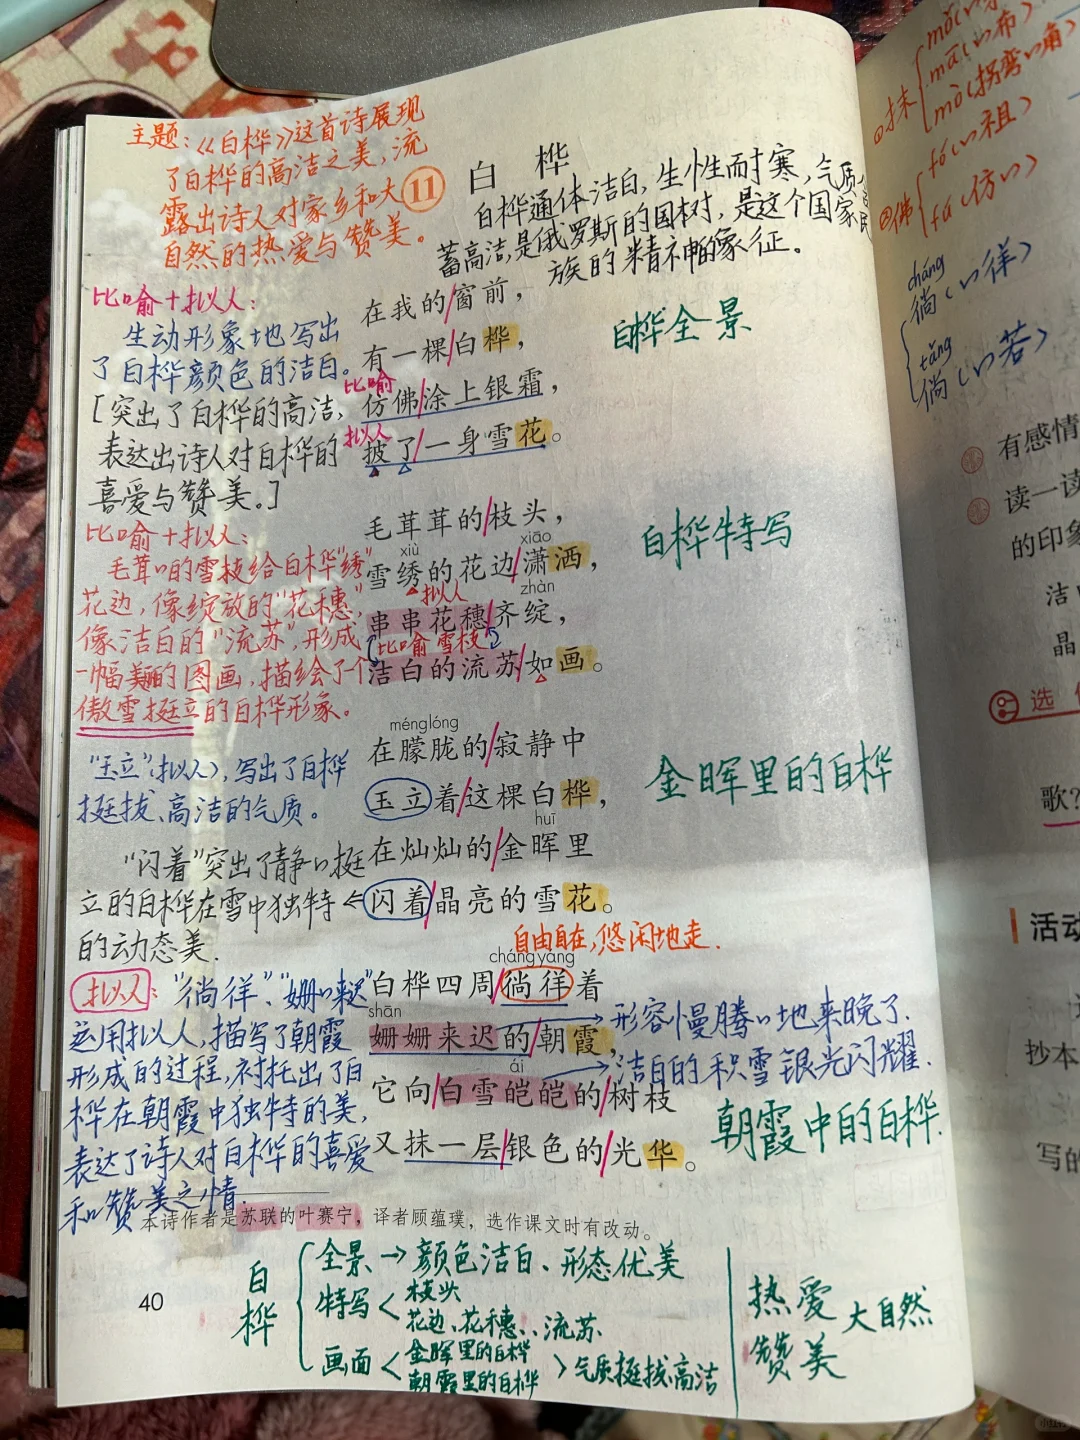 主题:《白桦》这首诗展现
了白桦的高洁之美,流
露出诗人对家乡和大
自然的热爱与赞美。
11 白桦
白桦通体洁白,生性耐寒,气质
蓄高洁,是俄罗斯的国树,是这个国家民
族的精神的象征。
比喻+拟人:
生动形象地写出
了白桦颜色的洁白。
[突出了白桦的高洁,
表达出诗人对白桦的
喜爱与赞美。]
在我的/窗前,
有一棵/白桦,
比喻
仿佛/涂上银霜,
拟人
披了/一身雪花。
白桦全景
比喻+拟人:
毛茸〃的雪枝给白桦"绣"
花边,像绽放的"花穗",
像洁白的"流苏",形成
一幅美丽的图画,描绘了个
傲雪挺立的白桦形象。
毛茸茸的/枝头,
xiù xiāo
雪绣的花边/潇洒,
拟人 zhàn
串串花穗/齐绽,
比喻 雪枝
洁白的流苏/如画。
白桦特写
"玉立"(拟人),写出了白桦
挺拔、高洁的气质。
"闪着"突出了静〃挺
立的白桦在雪中独特
的动态美.
ménglóng
在朦胧的/寂静中
玉立着/这棵白桦,
huī
在灿灿的/金晖里
闪着/晶亮的雪花。
金晖里的白桦
拟人:"徜徉"、"姗〃来迟"
运用拟人,描写了朝霞
形成的过程,衬托出了白
桦在朝霞中独特的美,
表达了诗人对白桦的喜爱
和赞美之情.
自由自在,悠闲地走.
chángyáng
白桦四周/徜徉着
shān
姗姗来迟的/朝霞,
形容慢腾〃地来晚了.
ái
它向/白雪皑皑的/树枝
洁白的积雪银光闪耀.
又抹一层/银色的/光华。
朝霞中的白桦.
本诗作者是苏联的叶赛宁,译者顾蕴璞,选作课文时有改动。
白桦
全景→颜色洁白、形态优美
特写<枝头
花边、花穗、流苏.
画面<金晖里的白桦
朝霞里的白桦
>气质挺拔高洁
热爱
赞美
大自然
40
①抹
mǒ(〃杀)
mā(〃布)
mò(拐弯〃角)
②佛
fó(〃祖)
fú(仿〃)
cháng
徜(〃徉)
tǎng
倘(〃若)
有感情
读一读
的印象
洁
晶
选
歌?
活动
抄本
写的